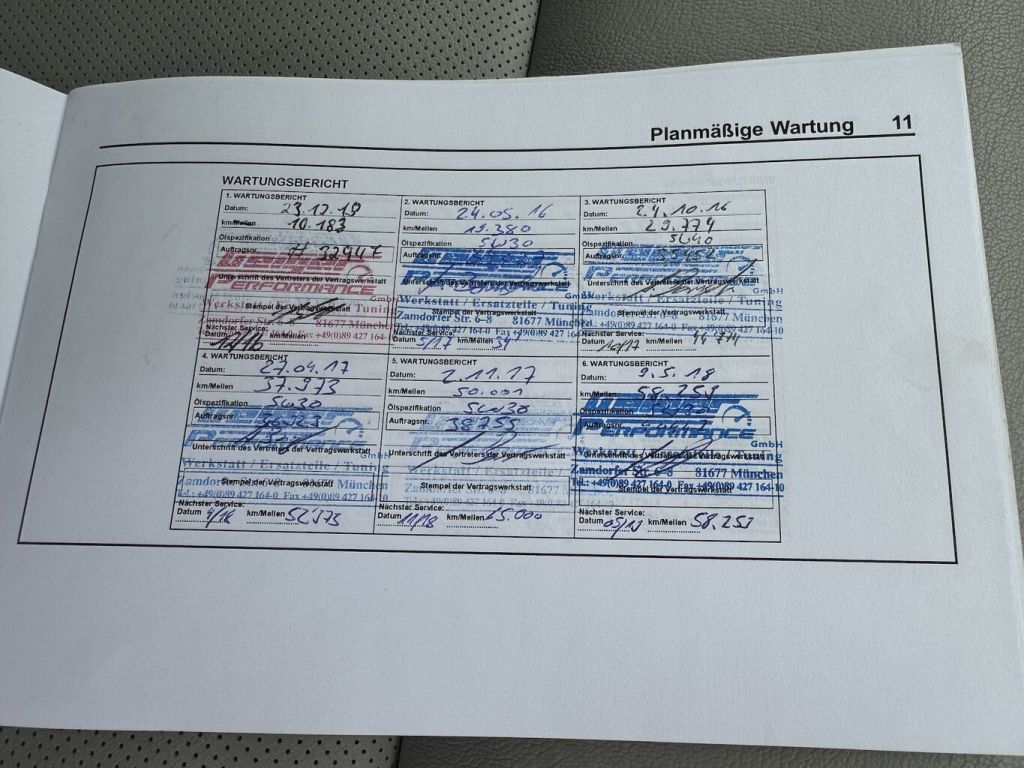 Planmäßige Wartung 11
WARTUNGSBERICHT
1. WARTUNGSBERICHT
Datum:
km/Meilen 10.183
Ölspezifikation
Auftragsnr. # 32947
PERFORMANCE
Unterschrift des Vertreters der Vertragswerkstatt
GmbH
Werkstatt / Ersatzteile / Tuning
Stempel der Vertragswerkstatt
Zamdorfer Str. 6–8 81677 München
Tel.: +49(0)89 427 164-0 Fax +49(0)89 427 164-10
Nächster Service:
Datum 12/16 km/Meilen
2. WARTUNGSBERICHT
Datum: 24.05.16
km/Meilen 19.380
Ölspezifikation 5W30
Auftragsnr.
Unterschrift des Vertreters der Vertragswerkstatt
GmbH
Werkstatt / Ersatzteile / Tuning
Stempel der Vertragswerkstatt
Zamdorfer Str. 6–8 81677 München
Tel.: +49(0)89 427 164-0 Fax +49(0)89 427 164-10
Nächster Service:
Datum 5/17 km/Meilen
3. WARTUNGSBERICHT
Datum: 24.10.16
km/Meilen 29.774
Ölspezifikation 5W40
Auftragsnr. 35452
Unterschrift des Vertreters der Vertragswerkstatt
GmbH
Werkstatt / Ersatzteile / Tuning
Stempel der Vertragswerkstatt
Zamdorfer Str. 6–8 81677 München
Tel.: +49(0)89 427 164-0 Fax +49(0)89 427 164-10
Nächster Service:
Datum 10/17 km/Meilen 44 774
4. WARTUNGSBERICHT
Datum: 27.04.17
km/Meilen 37.973
Ölspezifikation 5W30
Auftragsnr.
Unterschrift des Vertreters der Vertragswerkstatt
Werkstatt / Ersatzteile / Tuning
Stempel der Vertragswerkstatt
München
Tel.: +49(0)89 427 164-0 Fax +49(0)89 427 164-10
Nächster Service:
Datum 4/18 km/Meilen 52973
5. WARTUNGSBERICHT
Datum: 2.11.17
km/Meilen 50.001
Ölspezifikation 5W30
Auftragsnr. 38755
Unterschrift des Vertreters der Vertragswerkstatt
Werkstatt / Ersatzteile /
Stempel der Vertragswerkstatt
Zamdorfer Str. 6–8
Nächster Service:
Datum 11/18 km/Meilen 65.000
6. WARTUNGSBERICHT
Datum: 9.5.18
km/Meilen 58.253
Ölspezifikation
Auftragsnr.
PERFORMANCE
Unterschrift des Vertreters der Vertragswerkstatt
GmbH
Werkstatt / Ersatzteile / Tuning
Zamdorfer Str. 6–8 81677 München
Tel.: +49(0)89 427 164-0 Fax +49(0)89 427 164-10
Stempel der Vertragswerkstatt
Nächster Service:
Datum 05/19 km/Meilen 58.253